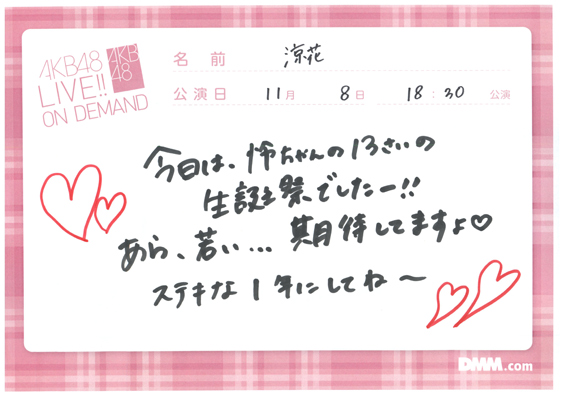 AKB48
LIVE!!
ON DEMAND
AKB
48
名前 涼花
公演日 11月 8日 18:30 公演
今日は、怜ちゃんの13さいの
生誕祭でしたー!!
あら、若い... 期待してますよ♡
ステキな1年にしてね〜
DMM.com